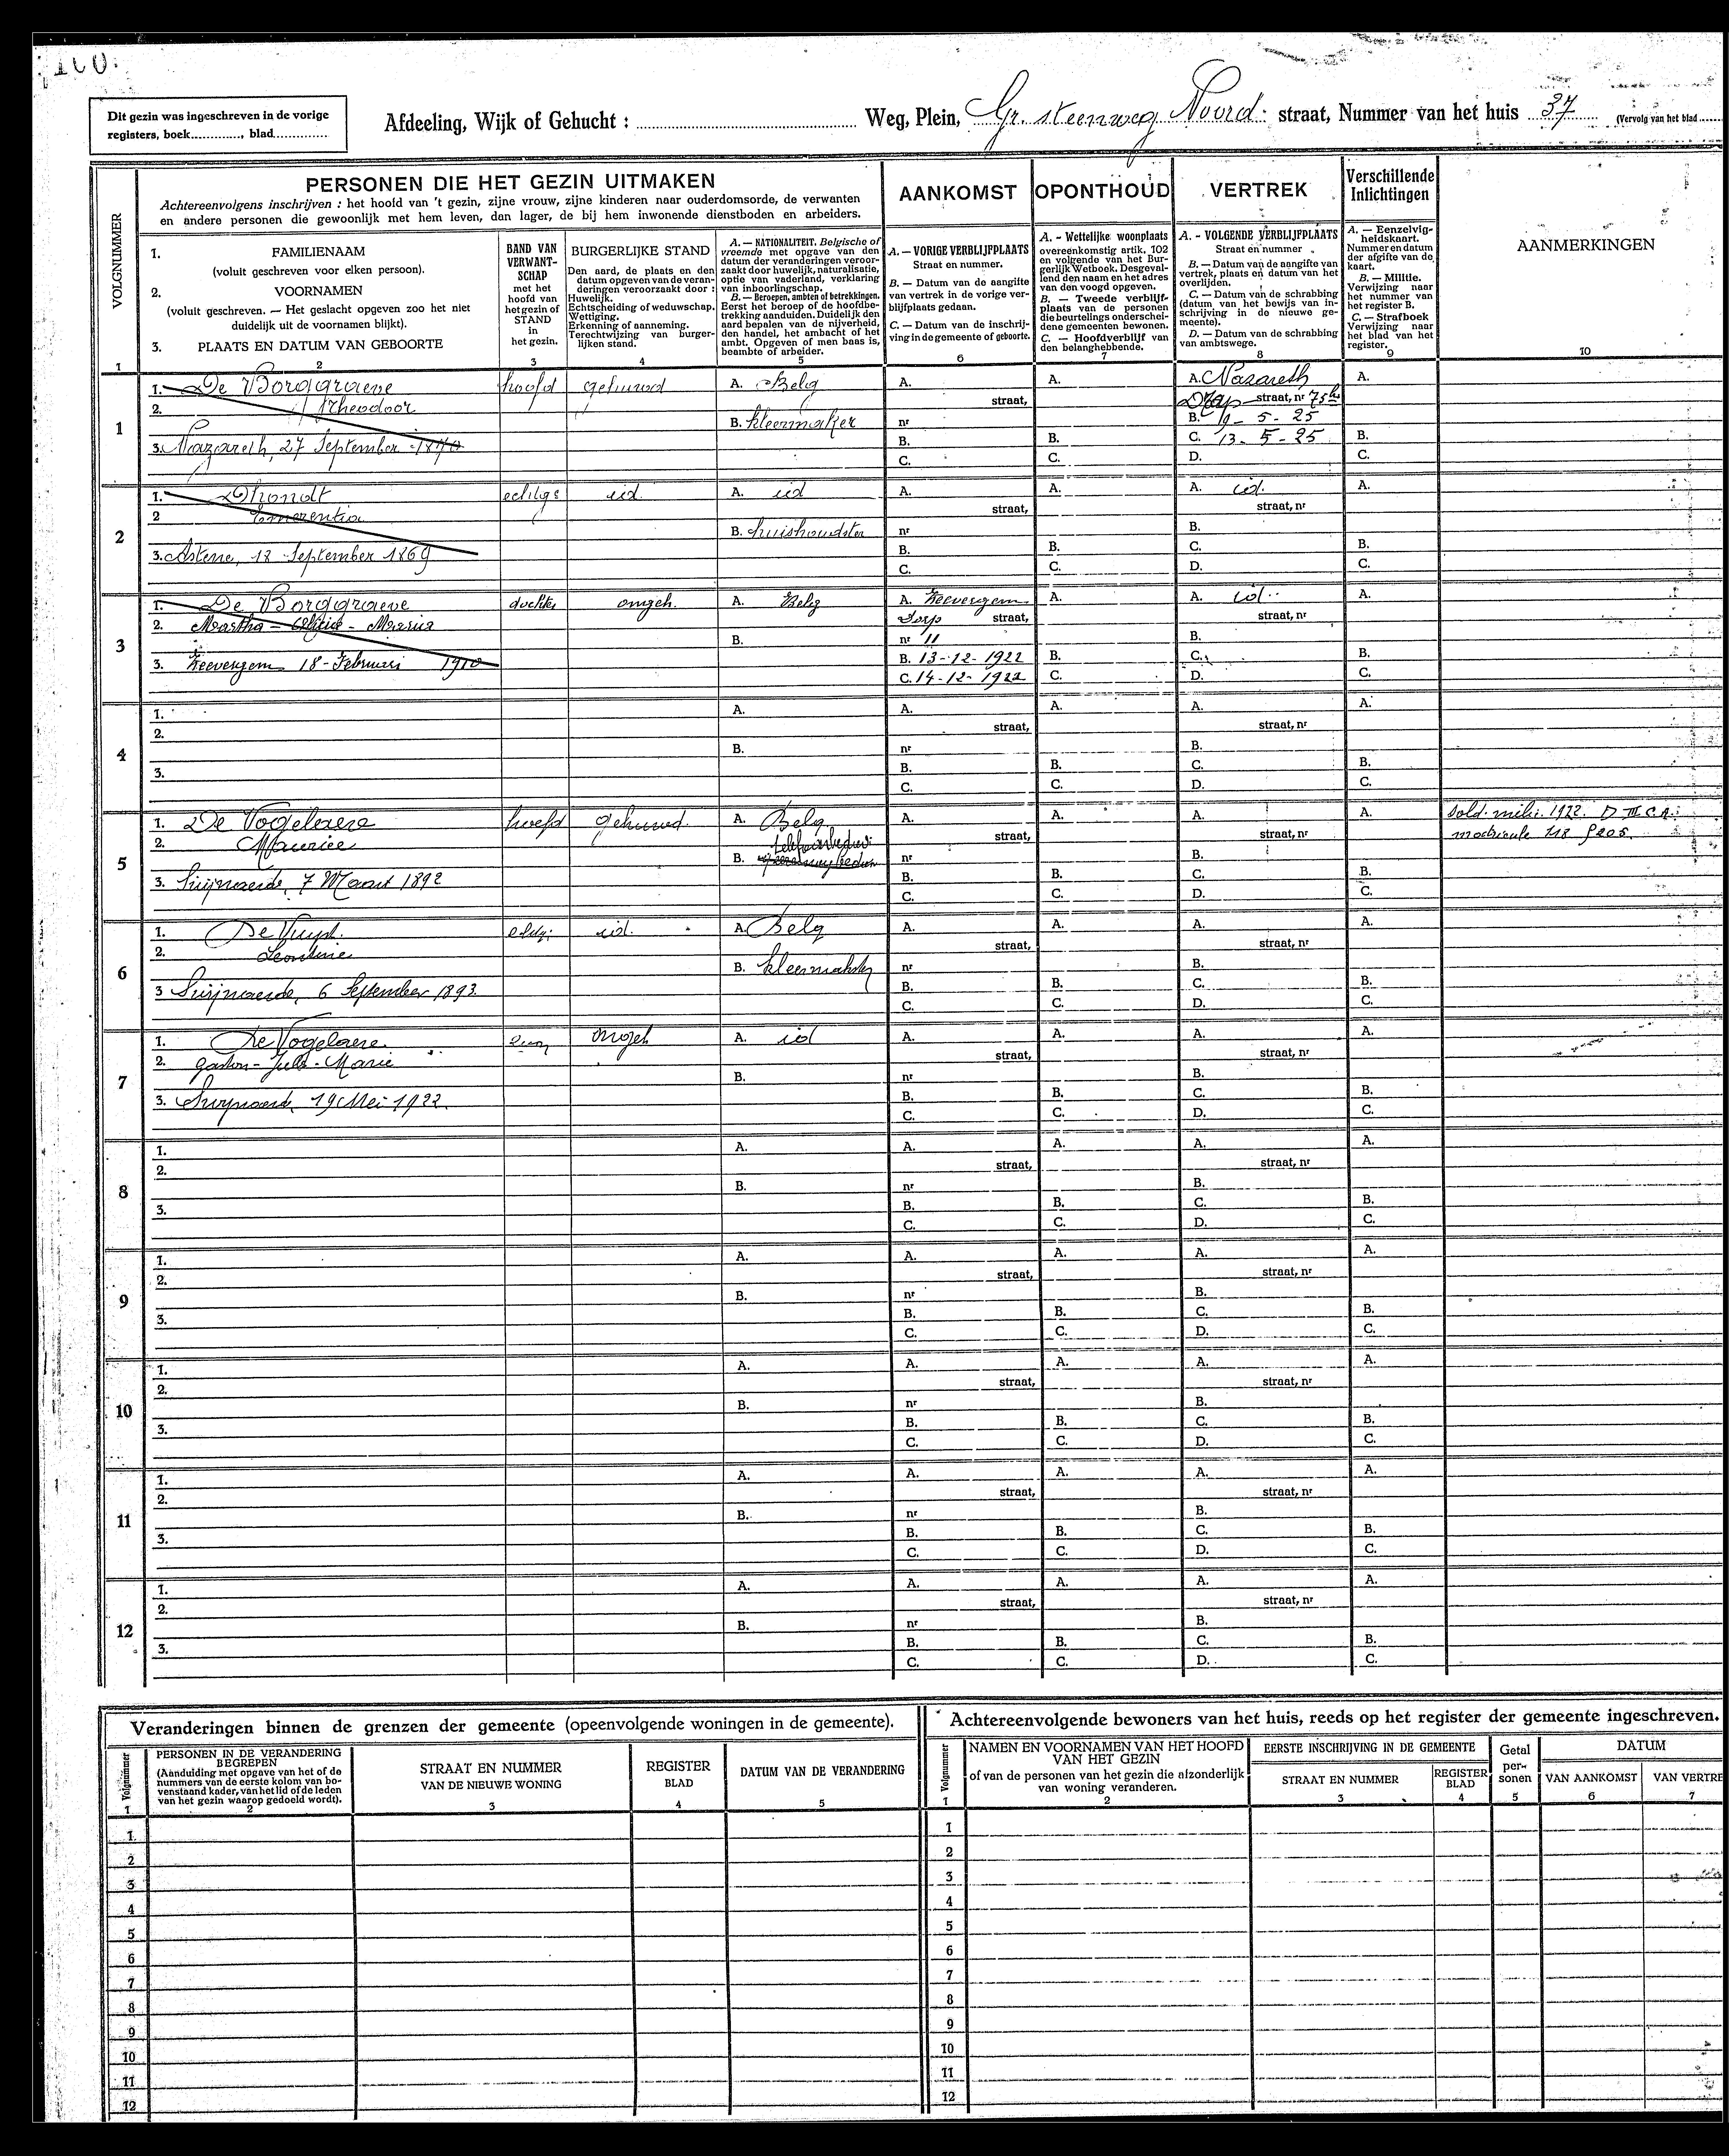 100.
Dit gezin was ingeschreven in de vorige
registers, boek............, blad............
Afdeeling, Wijk of Gehucht : ............ Weg, Plein, Gr. steenweg Noord. straat, Nummer van het huis 37 (Vervolg van het blad ......
VOLGNUMMER
PERSONEN DIE HET GEZIN UITMAKEN
Achtereenvolgens inschrijven : het hoofd van 't gezin, zijne vrouw, zijne kinderen naar ouderdomsorde, de verwanten
en andere personen die gewoonlijk met hem leven, dan lager, de bij hem inwonende dienstboden en arbeiders.
1. FAMILIENAAM
(voluit geschreven voor elken persoon).
2. VOORNAMEN
(voluit geschreven. — Het geslacht opgeven zoo het niet
duidelijk uit de voornamen blijkt).
3. PLAATS EN DATUM VAN GEBOORTE
BAND VAN
VERWANT-
SCHAP
met het
hoofd van
het gezin of
STAND
in
het gezin.
BURGERLIJKE STAND
Den aard, de plaats en den
datum opgeven van de veran-
deringen veroorzaakt door :
Huwelijk.
Echtscheiding of weduwschap.
Wettiging.
Erkenning of aanneming.
Terechtwijzing van burger-
lijken stand.
A. — NATIONALITEIT. Belgische of
vreemde met opgave van den
datum der veranderingen veroor-
zaakt door huwelijk, naturalisatie,
optie van vaderland, verklaring
van inboorlingschap.
B. — Beroepen, ambten of betrekkingen.
Eerst het beroep of de hoofdbe-
trekking aanduiden. Duidelijk den
aard bepalen van de nijverheid,
den handel, het ambacht of het
ambt. Opgeven of men baas is,
beambte of arbeider.
AANKOMST
A. — VORIGE VERBLIJFPLAATS
Straat en nummer.
B. — Datum van de aangifte
van vertrek in de vorige ver-
blijfplaats gedaan.
C. — Datum van de inschrij-
ving in de gemeente of geboorte.
OPONTHOUD
A. - Wettelijke woonplaats
overeenkomstig artik. 102
en volgende van het Bur-
gerlijk Wetboek. Desgeval-
lend den naam en het adres
van den voogd opgeven.
B. — Tweede verblijf-
plaats van de personen
die beurtelings onderschei-
dene gemeenten bewonen.
C. — Hoofdverblijf van
den belanghebbende.
VERTREK
A. - VOLGENDE VERBLIJFPLAATS
Straat en nummer
B. — Datum van de aangifte van
vertrek, plaats en datum van het
overlijden.
C. — Datum van de schrabbing
(datum van het bewijs van in-
schrijving in de nieuwe ge-
meente).
D. — Datum van de schrabbing
van ambtswege.
Verschillende
Inlichtingen
A. — Eenzelvig-
heidskaart.
Nummer en datum
der afgifte van de
kaart.
B. — Militie.
Verwijzing naar
het nummer van
het register B.
C. — Strafboek
Verwijzing naar
het blad van het
register.
AANMERKINGEN
1 2 3 4 5 6 7 8 9 10
1
1. De Borggraeve hoofd gehuwd A. Belg A. A. A. Nazareth A.
2. Theodoor straat, Dorp straat, nr 75
B. kleermaker nr B. 9-5-25
3. Nazareth, 27 September 1870 B. B. C. 13-5-25 B.
C. C. D. C.
2
1. Dhondt echtge id. A. id A. A. A. id. A.
2 Emerentia straat, straat, nr
B. huishoudster nr B.
3. Astene, 18 September 1869 B. B. C. B.
C. C. D. C.
3
1. De Borggraeve dochter ongeh. A. Belg A. Zeevergem A. A. id. A.
2. Martha - - Maria Dorp straat, straat, nr
B. nr 11 B.
3. Zeevergem 18 - Februari 1910 B. 13-12-1922 B. C. B.
C. 14-12-1922 C. D. C.
4
1. A. A. A. A. A.
2. straat, straat, nr
B. nr B.
3. B. B. C. B.
C. C. D. C.
5
1. De Vogelaere hoofd gehuwd A. Belg A. A. A. A. sold. milic. 1912. D III C.A.
2. Maurice straat, straat, nr matricule 118 
B. nr B.
3. Swijnaerde, 7 Maart 1892 B. B. C. B.
C. C. D. C.
6
1. De Vuyst echtg. id. A. Belg A. A. A. A.
2. Leontine straat, straat, nr
B. kleermakster nr B.
3 Swijnaerde, 6 September 1893. B. B. C. B.
C. C. D. C.
7
1. De Vogelaere zoon ongeh A. id A. A. A. A.
2. Gaston - Jules - Marie straat, straat, nr
B. nr B.
3. Swijnaerde, 19 Mei 1922. B. B. C. B.
C. C. D. C.
8
1. A. A. A. A. A.
2. straat, straat, nr
B. nr B.
3. B. B. C. B.
C. C. D. C.
9
1. A. A. A. A. A.
2. straat, straat, nr
B. nr B.
3. B. B. C. B.
C. C. D. C.
10
1. A. A. A. A. A.
2. straat, straat, nr
B. nr B.
3. B. B. C. B.
C. C. D. C.
11
1. A. A. A. A. A.
2. straat, straat, nr
B. nr B.
3. B. B. C. B.
C. C. D. C.
12
1. A. A. A. A. A.
2. straat, straat, nr
B. nr B.
3. B. B. C. B.
C. C. D. C.
Veranderingen binnen de grenzen der gemeente (opeenvolgende woningen in de gemeente).
Volgnummer
PERSONEN IN DE VERANDERING
BEGREPEN
(Aanduiding met opgave van het of de
nummers van de eerste kolom van bo-
venstaand kader, van het lid of de leden
van het gezin waarop gedoeld wordt).
STRAAT EN NUMMER
VAN DE NIEUWE WONING
REGISTER
BLAD
DATUM VAN DE VERANDERING
1 2 3 4 5
1
2
3
4
5
6
7
8
9
10
11
12
Achtereenvolgende bewoners van het huis, reeds op het register der gemeente ingeschreven.
Volgnummer
NAMEN EN VOORNAMEN VAN HET HOOFD
VAN HET GEZIN
of van de personen van het gezin die afzonderlijk
van woning veranderen.
EERSTE INSCHRIJVING IN DE GEMEENTE
STRAAT EN NUMMER
REGISTER
BLAD
Getal
per-
sonen
DATUM
VAN AANKOMST VAN VERTRE
1 2 3 4 5 6 7
1
2
3
4
5
6
7
8
9
10
11
12